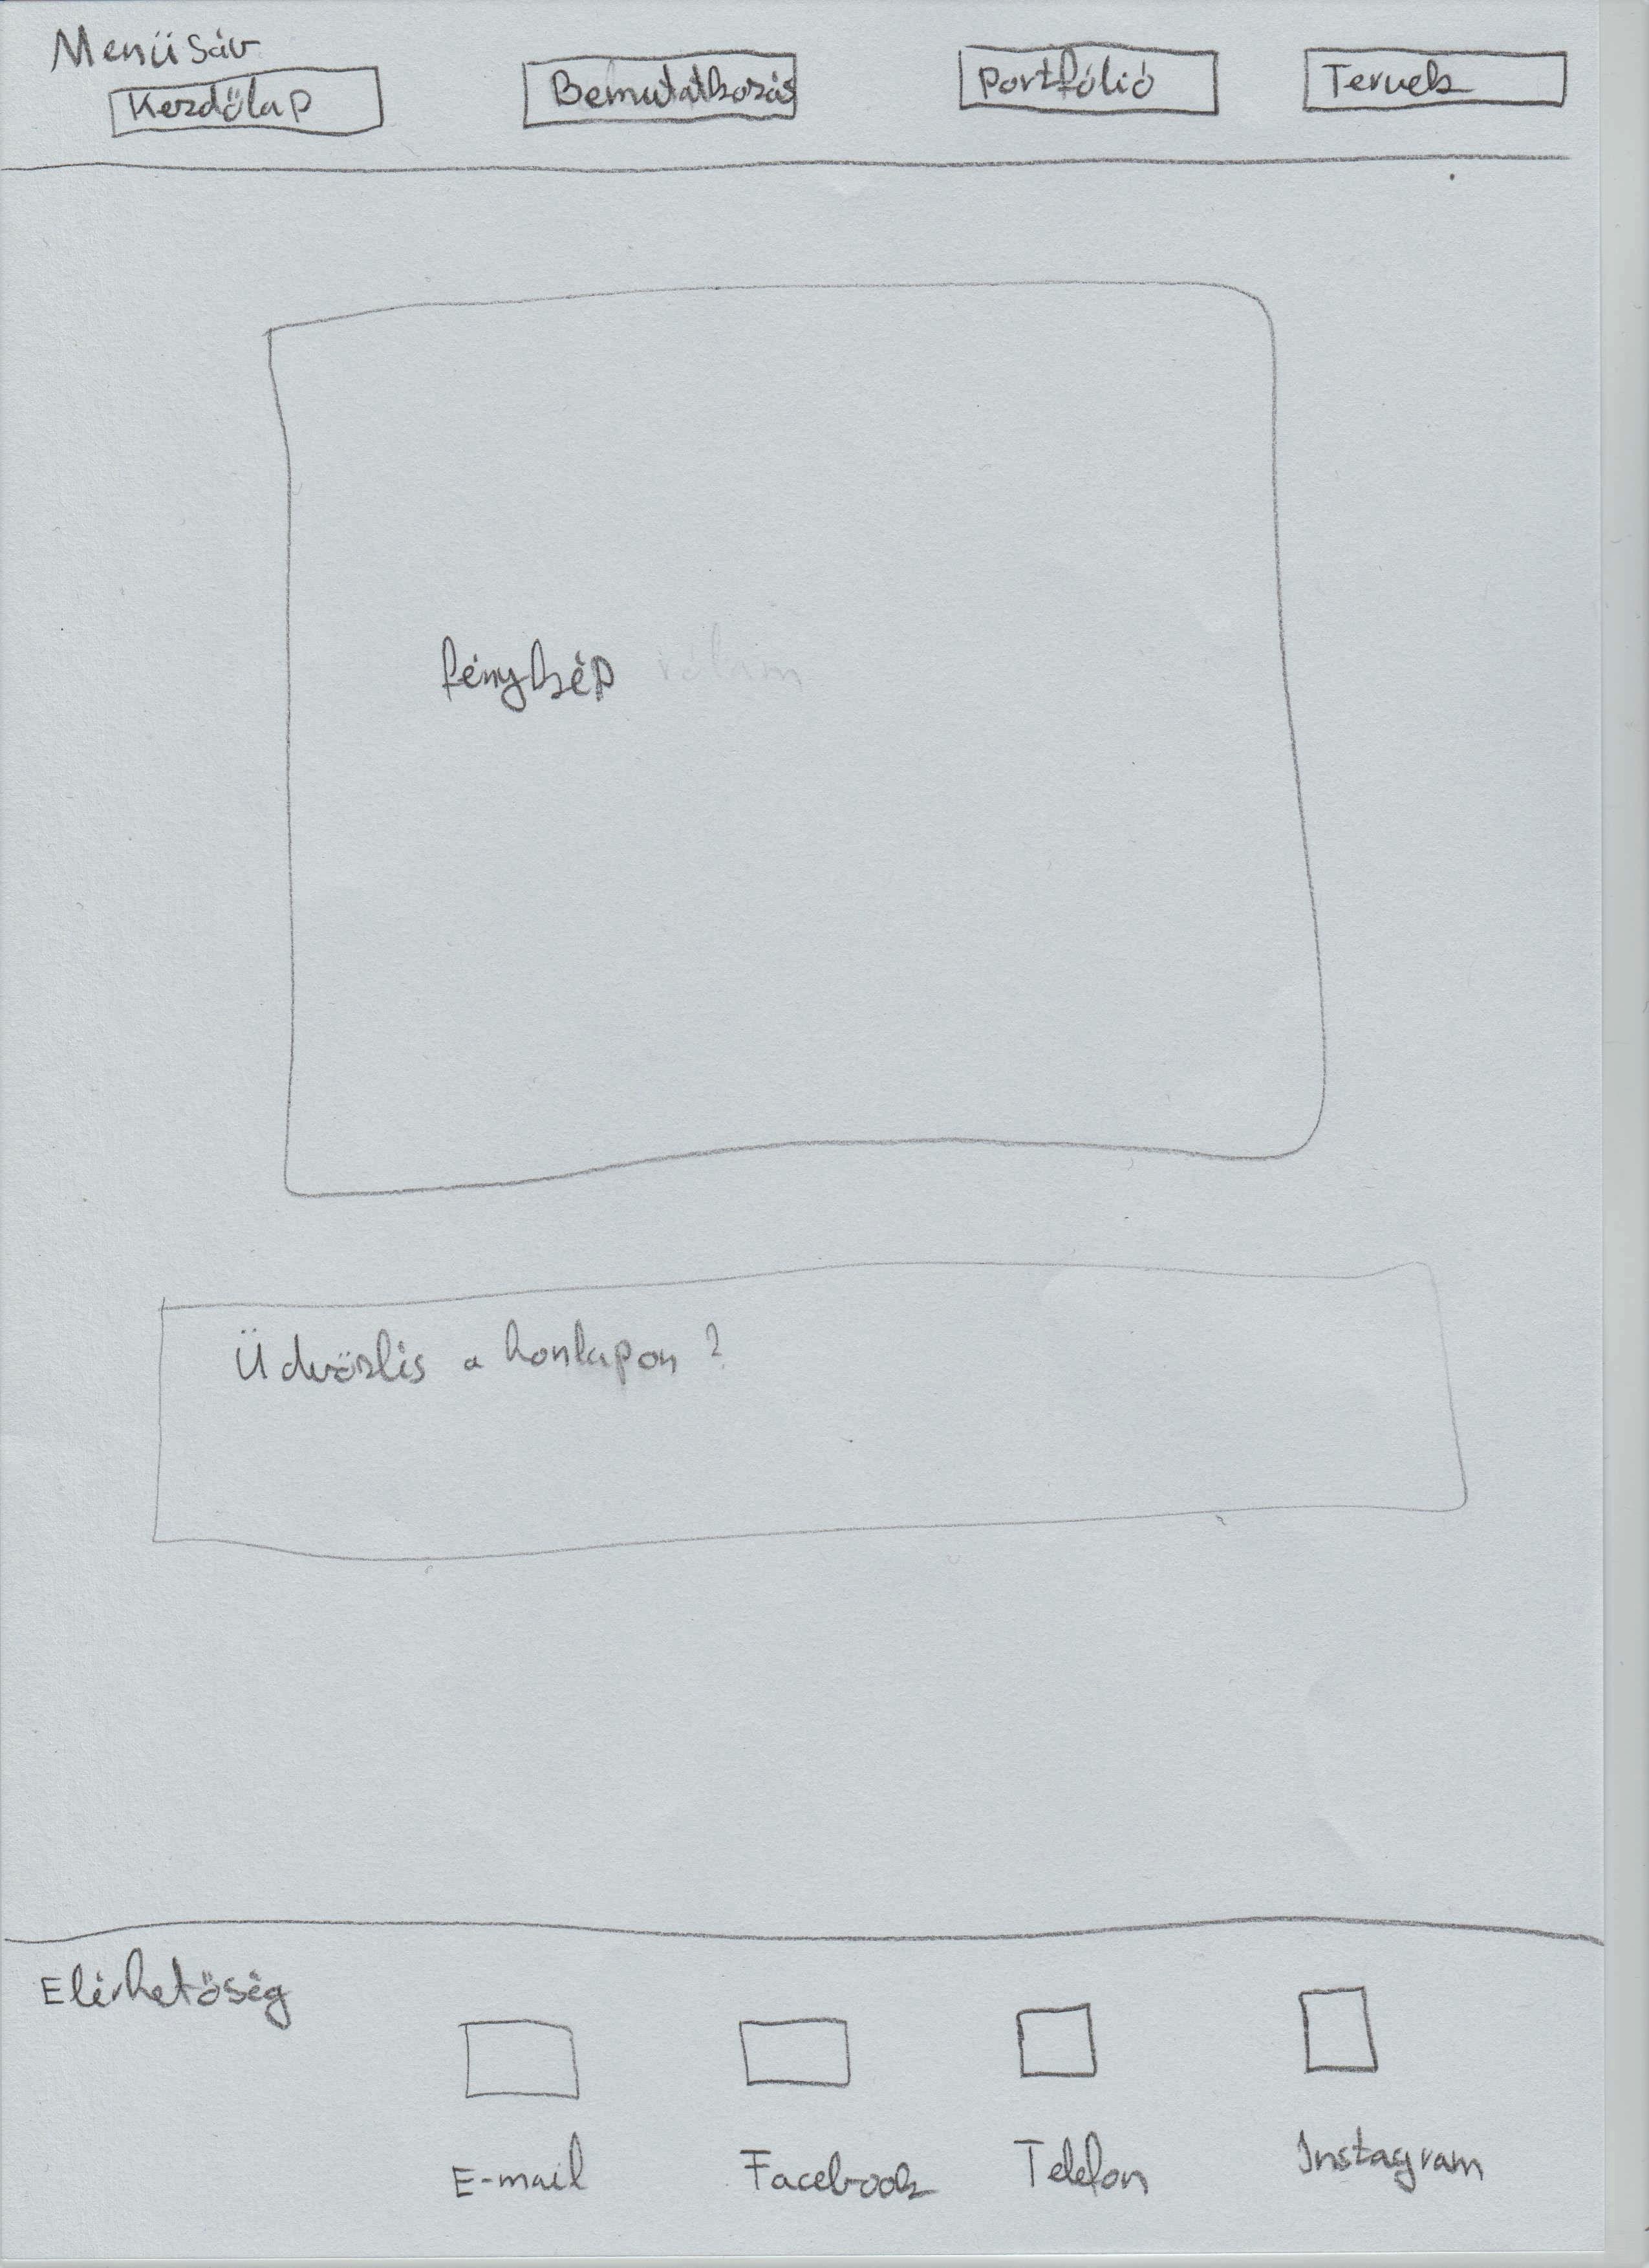 Menüsáv
Kezdőlap
Bemutatkozás
Portfólió
Tervek
fénykép rólam
Üdvözlés a honlapon?
Elérhetőség
E-mail
Facebook
Telefon
Instagram